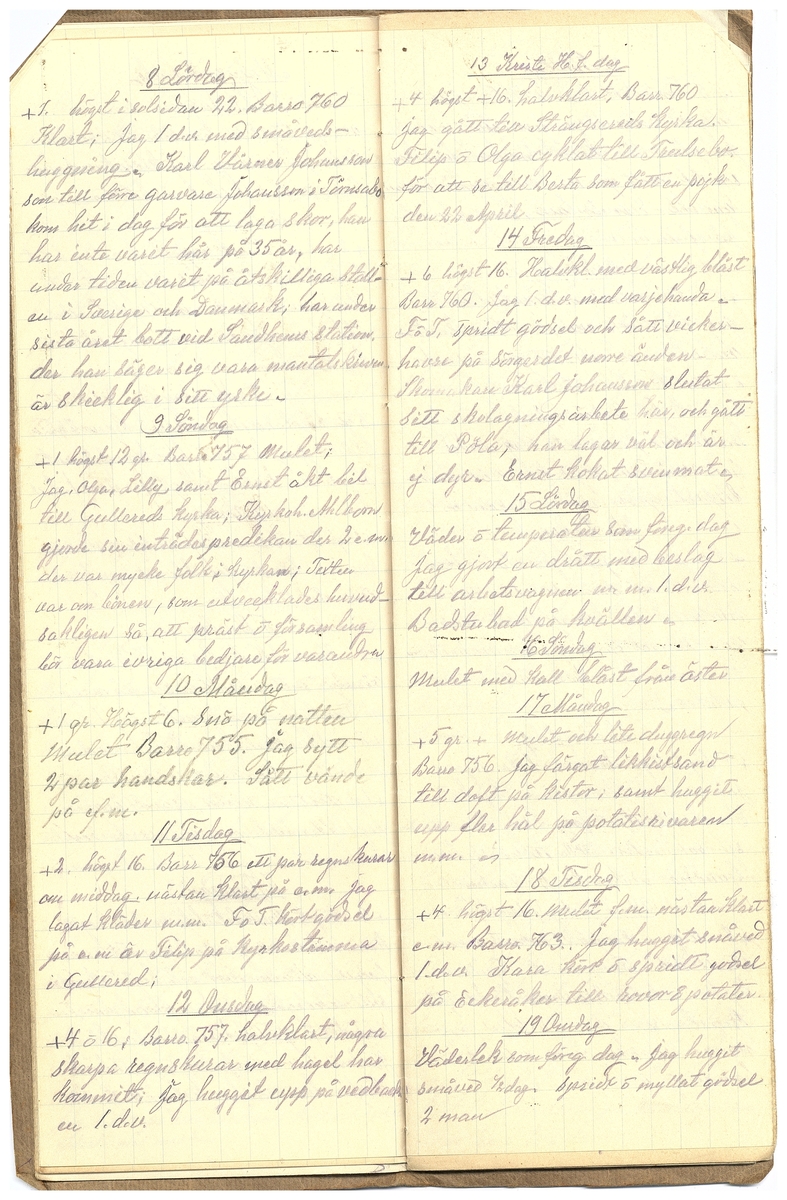 8 Lördag
+1. högst i solsidan 22. Barro 760
Klart; Jag 1 d.v. med småveds-
huggning. Karl Värner Johansson
son till förre garvare Johansson i Törnsabo
kom hit i dag för att laga skor, han
har inte varet här på 35 år, har
under tiden varet på åtskilliga ställ-
en i Sverige och Danmark; har under
sista året bott vid Sandhems station,
der han säger sig vara mantalskriven
är skicklig i sitt yrke.
9 Söndag
+1 högst 12 gr. Barr 757 Mulet;
Jag, Olga, Lilly samt Ernst åkt bil
till Gullereds kyrka; Kyrkoh. Ahlborn
gjorde sin inträdespredikan der 2 e.m.
der var mycke folk i kyrkan; Texten
var om bönen, som utvecklades huvud-
sakligen så, att präst ö församling
bör vara ivriga bedjare för varandra
10 Måndag
+1 gr. Högst 6. Snö på natten
Mulet Barro 755. Jag sytt
2 par handskar. Sått vände
på ef.m.
11 Tisdag
+2. högst 16. Barr 756 ett par regnskurar
om middag. nästan klart på e.m. jag
lagat kläder m.m. F ö T. kört gödsel
på e.m är Filip på kyrkostämma
i Gullered;
12 Onsdag
+4 ö 16; Barro. 757. halvklart, några
skarpa regnskurar med hagel har
kommit; Jag hugget upp på vedback
en 1. d.v.
13 Kristi H.f. dag
+4 högst +16. halvklart, Barr. 760
jag gått till Strängsereds kyrka.
Filip ö Olga cyklat till Trulsebo.
för att se till Berta som fått en pojk
den 22 April
14 Fredag
+6 högst 16. Halvkl. med västlig blåst
Barr 760. Jag 1. d.v. med varjehanda.
F ö T. spridt gödsel och sått vicker-
havre på norre änden.
Skomakare Karl Johansson slutat
sitt skolagningsarbete här, och gått
till Pöla, han lagar väl och är
ej dyr. Ernst kokat svinmat.
15 Lördag
Väder ö temperatur som föreg. dag
Jag gjort en drått med beslag
till arbetsvagnen m. m. 1. d.v.
Badstubad på kvällen
16 Söndag
Mulet med kall blåst från öster
17 Måndag
+5 gr. + mulet och lite duggregn
Barro 756. Jag färgat likkistsand
till doft på kistor; samt hugget
upp fler hål på potatisrivaren
m.m.
18 Tisdag
+4 högst 16. mulet f.m. nästan klart
e.m. Barro. 763. Jag hugget småved
1. d.v. Kara kört ö spridt gödsel
på Ekeråker till rovor & potater.
19 Onsdag
Väderlek som föreg dag. Jag hugget
småved ½ dag. Spridt ö myllat gödsel
2 man